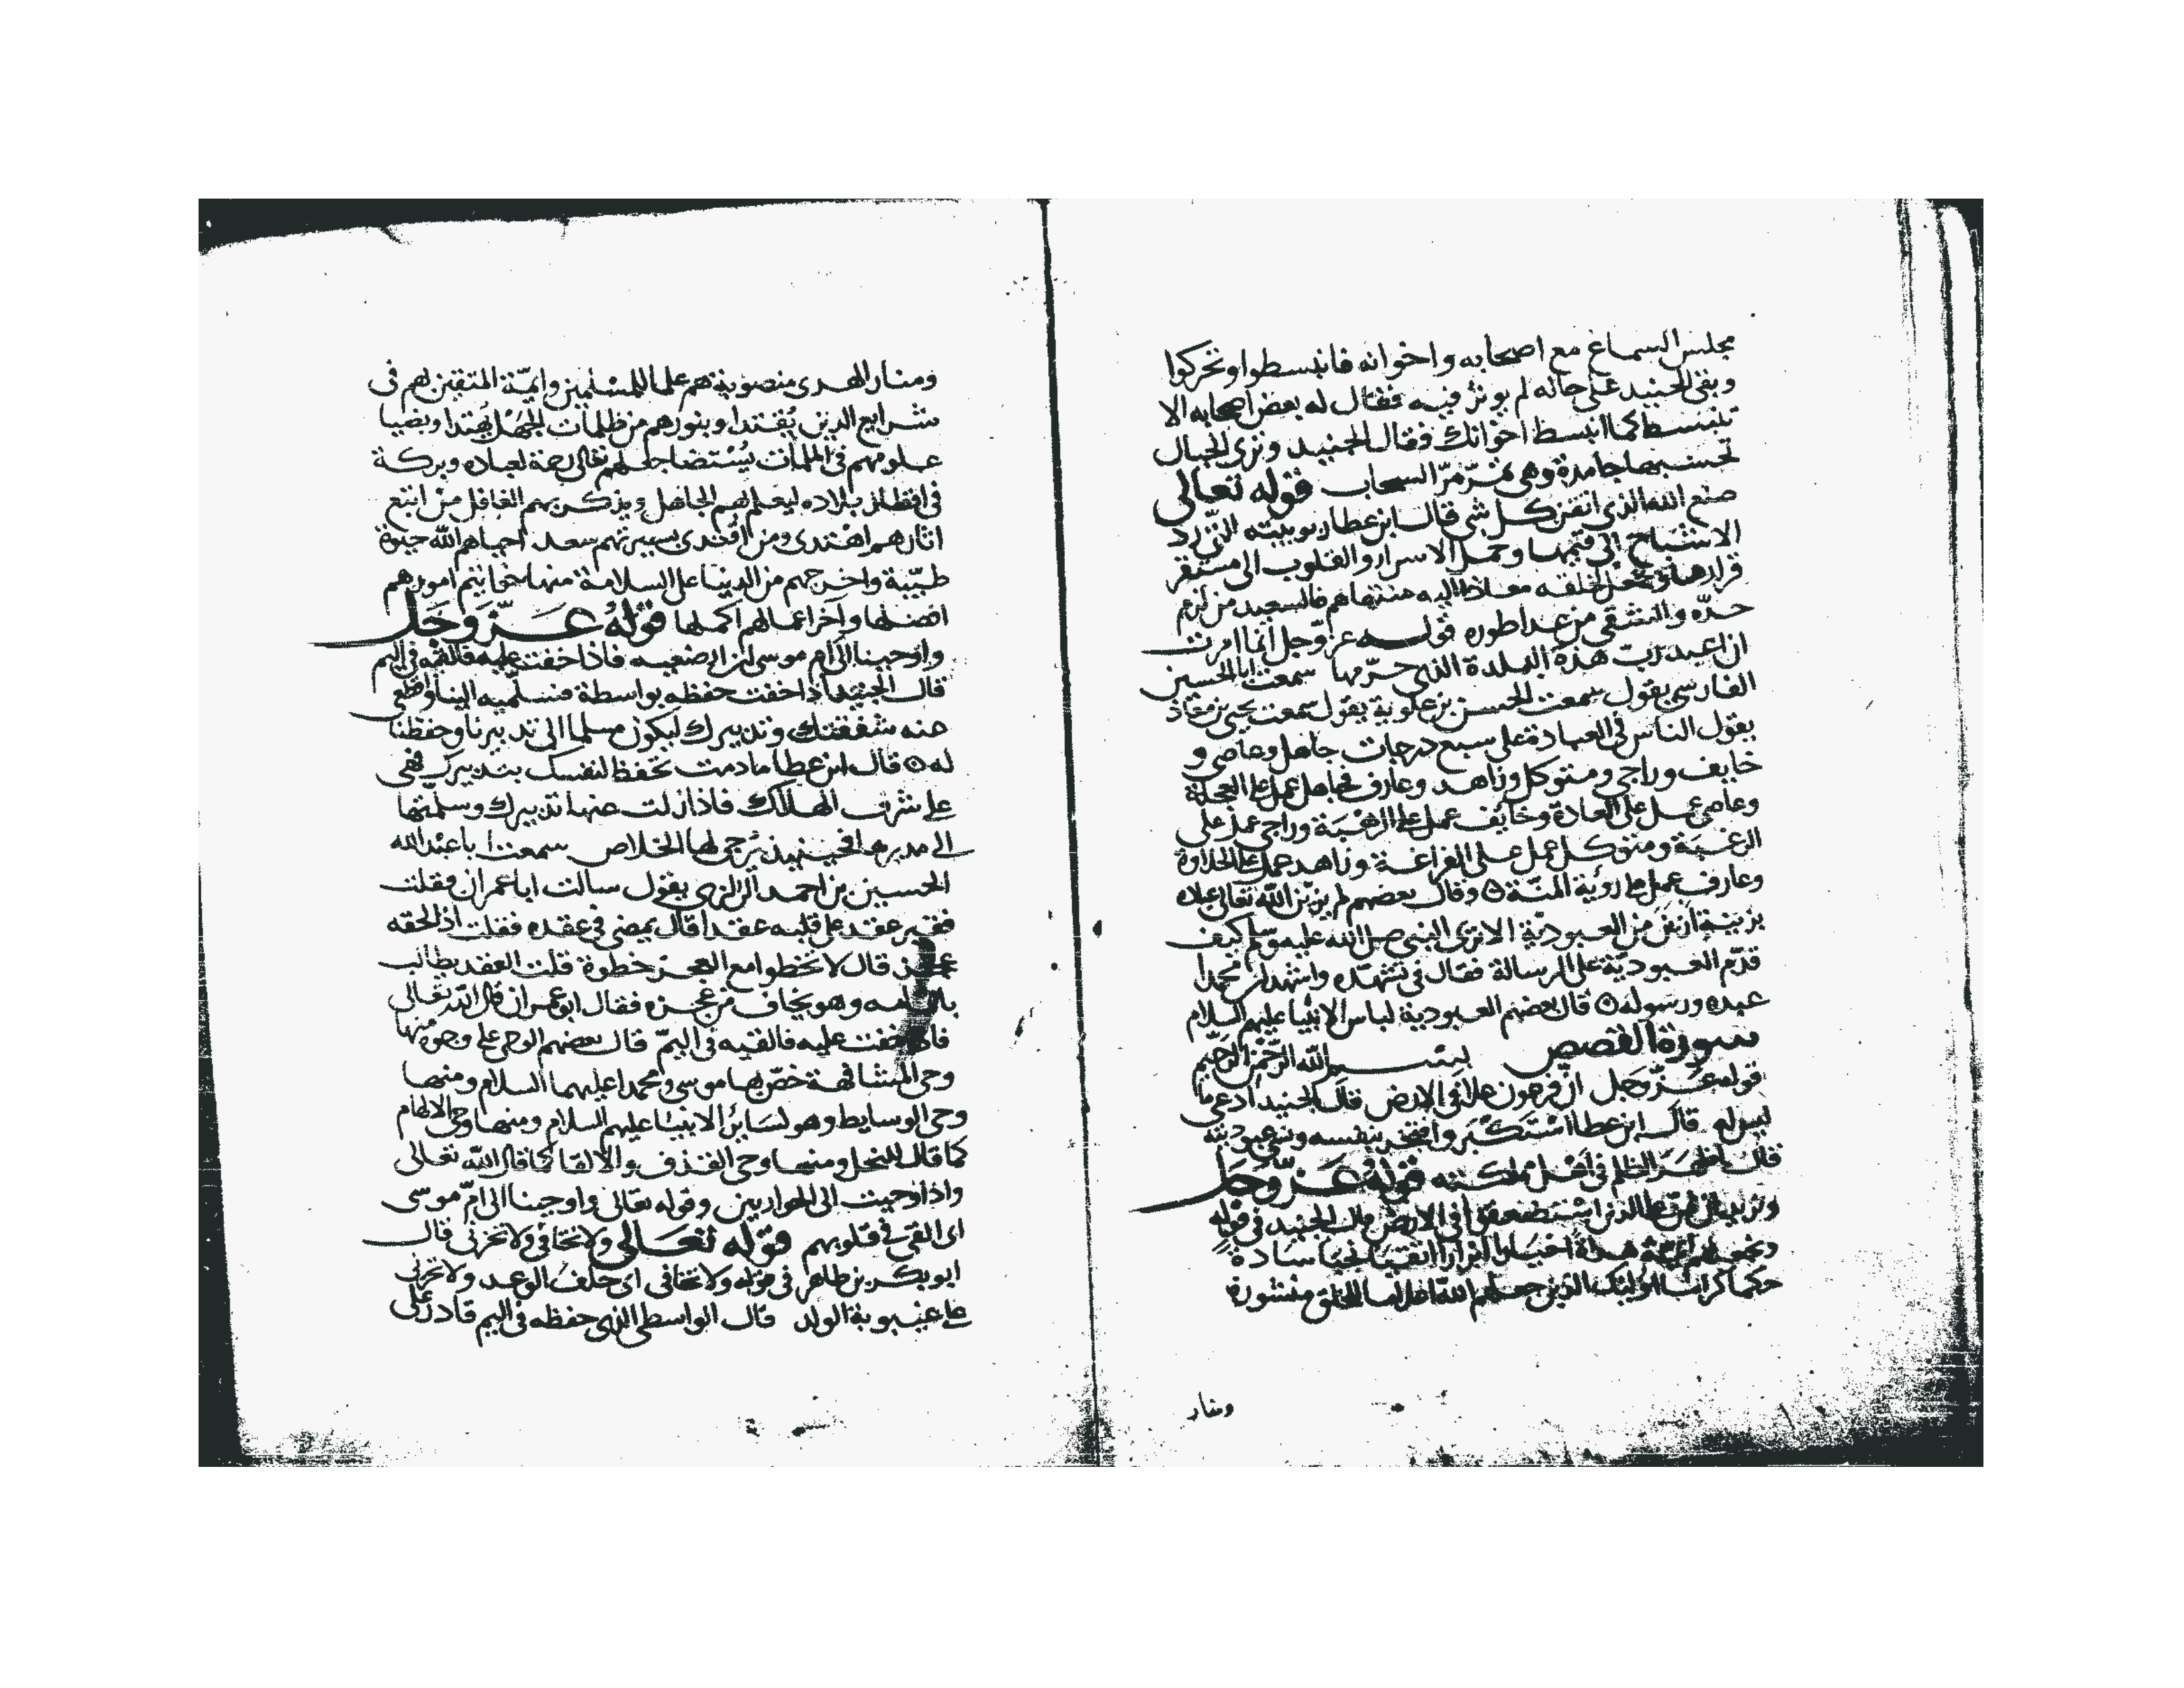 مجلس السماع مع اصحابه واخوانه فانبسطوا وتحركوا
وبقى الجنيد على حاله لم يوثر فيه فقال له بعض اصحابه الا
تنبسط كما انبسط اخوانك فقال الجنيد وترى الجبال
تحسبها جامدة وهى تمر مرّ السحاب قوله تعالى
صنع الله الذى اتقن كل شى قال ابن عطا ربوبيته التى رد
الاشباح الى قيمها وحمل الاسرار والقلوب الى مستقر
قرارها لخلقه معاذا اليه منتهاهم فالسعيد من لزم
حدّه والشقى من عدا طوره قوله عز وجل انما امرت
ان اعبد ربّ هذه البلدة الذى حرّمها سمعت ابا الحسين
الفارسى يقول سمعت الحسن بن علوية يقول سمعت يحيى بن معاذ
يقول الناس فى العبادة على سبع درجات جاهل وعاصى و
خايف وراجى ومتوكل وزاهد وعارف فجاهل عمل على العجلة
وعاصى عمل على العادة وخايف عمل على الرهبة وراجى عمل على
الرغبة ومتوكل عمل على الفراغة وزاهد عمل على الحلاوة
وعارف عمل على رؤية المنّة ۞ وقال بعضهم لم يزيّن الله تعالى عبده
بزينة ازين من العبودية الا ترى النبى صلى الله عليه وسلم كيف
قدّم العبودية على الرسالة فقال فى تشهده واشهد ان محمدا
عبده ورسوله ۞ قال بعضهم العبودية لباس الانبيا عليهم السلام
سورة القصص بسم الله الرحمن الرحيم
قوله عزّ وجل ان فرعون علا فى الارض قال الجنيد ادعى ما
ليس له قال ابن عطا استكبر وافتخر بنفسه ونسى عبوديته
قال اظهر الظلم فى اهل مملكته قوله عزّ وجل
ونريد ان نمن على الذين استضعفوا فى الارض قال الجنيد فى قوله
ونجعلهم ائمة هداة اخيارا ابرارا اتقيا نجبا سادة
حكما كراما اوليك الذين جعلهم الله اعلاما للخلق منشورة
ومنار
ومنار الهدى منصوبة هم علما المسلمين وايمّة المتقين بهم فى
شرايع الدين يُقتدا وبنورهم من ظلمات الجهل يُهتدا وبضيا
علومهم فى الملمات يُستضا جعلهم تعالى رحمة لعباده وبركة
فى اقطار بلاده ليعلم بهم الجاهل ويذكر بهم الغافل من اتبع
اثارهم اهتدى ومن اقتدى بسيرتهم سعد احياهم الله حيوة
طيّبة واخرجهم من الدينا على السلامة منها خواتيم امورهم
افضلها وآخر اعمالهم اكملها قوله عزّ وجل
واوحينا الى ام موسى ان ارضعيه فاذا خفت عليه فالقيه فى اليم
قال الجنيد اذا خفت حفظه بواسطة فسلميه الينا واقطعى
عنه شفقتك وتدبيرك ليكون مسلما الى تدبيرنا وحفظنا
له ۞ قال ابن عطا ما دمت تحفظ لنفسك بتدبيرك فهى
على شرف الهلاك فاذا زلت عنها تدبيرك وسلمتها
الى مدبرها فحينيذ يُرجى لها الخلاص سمعت ابا عبد الله
الحسين بن احمد الرازى يقول سالت ابا عمران وقلت
فقير عقد على قلبه عقدا قال يمضى فى عقده فقلت اذ الحقه
عجز قال لا تخطوا مع العجز خطوة قلت العقد يطالب
وهو يخاف من عجزه فقال ابو عمران قال الله تعالى
فاذا خفت عليه فالقيه فى اليمّ قال بعضهم الوحى على وجوه منها
وحى المشافهة خصّ بها موسى ومحمدا عليهما السلام ومنها
وحى الوسايط وهو لسائر الانبيا عليهم السلام ومنها وحى الالهام
كما قال للنحل ومنها وحى القذف والالقا كما قال الله تعالى
واذ اوحيت الى الحواريين وقوله تعالى واوحينا الى امّ موسى
اى القى فى قلوبهم قوله تعالى ولا تخافى ولا تحزنى قال
ابو بكر بن طاهر فى قوله ولا تخافى اى خلف الوعد ولا تحزنى
على غيبوبة الولد قال الواسطى الذى حفظه فى اليم قادر على